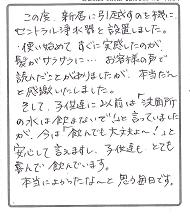 この度、新居に引越すのを機に、
セントラル浄水器と設置しました。
使い始めて すぐに実感したのが、
髪がサラサラに… お客様の声で
読んだことがありましたが、本当だ〜
と感激いたしました。
そして、子供達に以前は「洗面所
の水は飲まないで!」と言っていました
が、今は「飲んでも大丈夫よ〜!」と
安心して言えますし、子供達も とても
喜んで 飲んでいます。
本当によかったな〜と 思う毎日です。